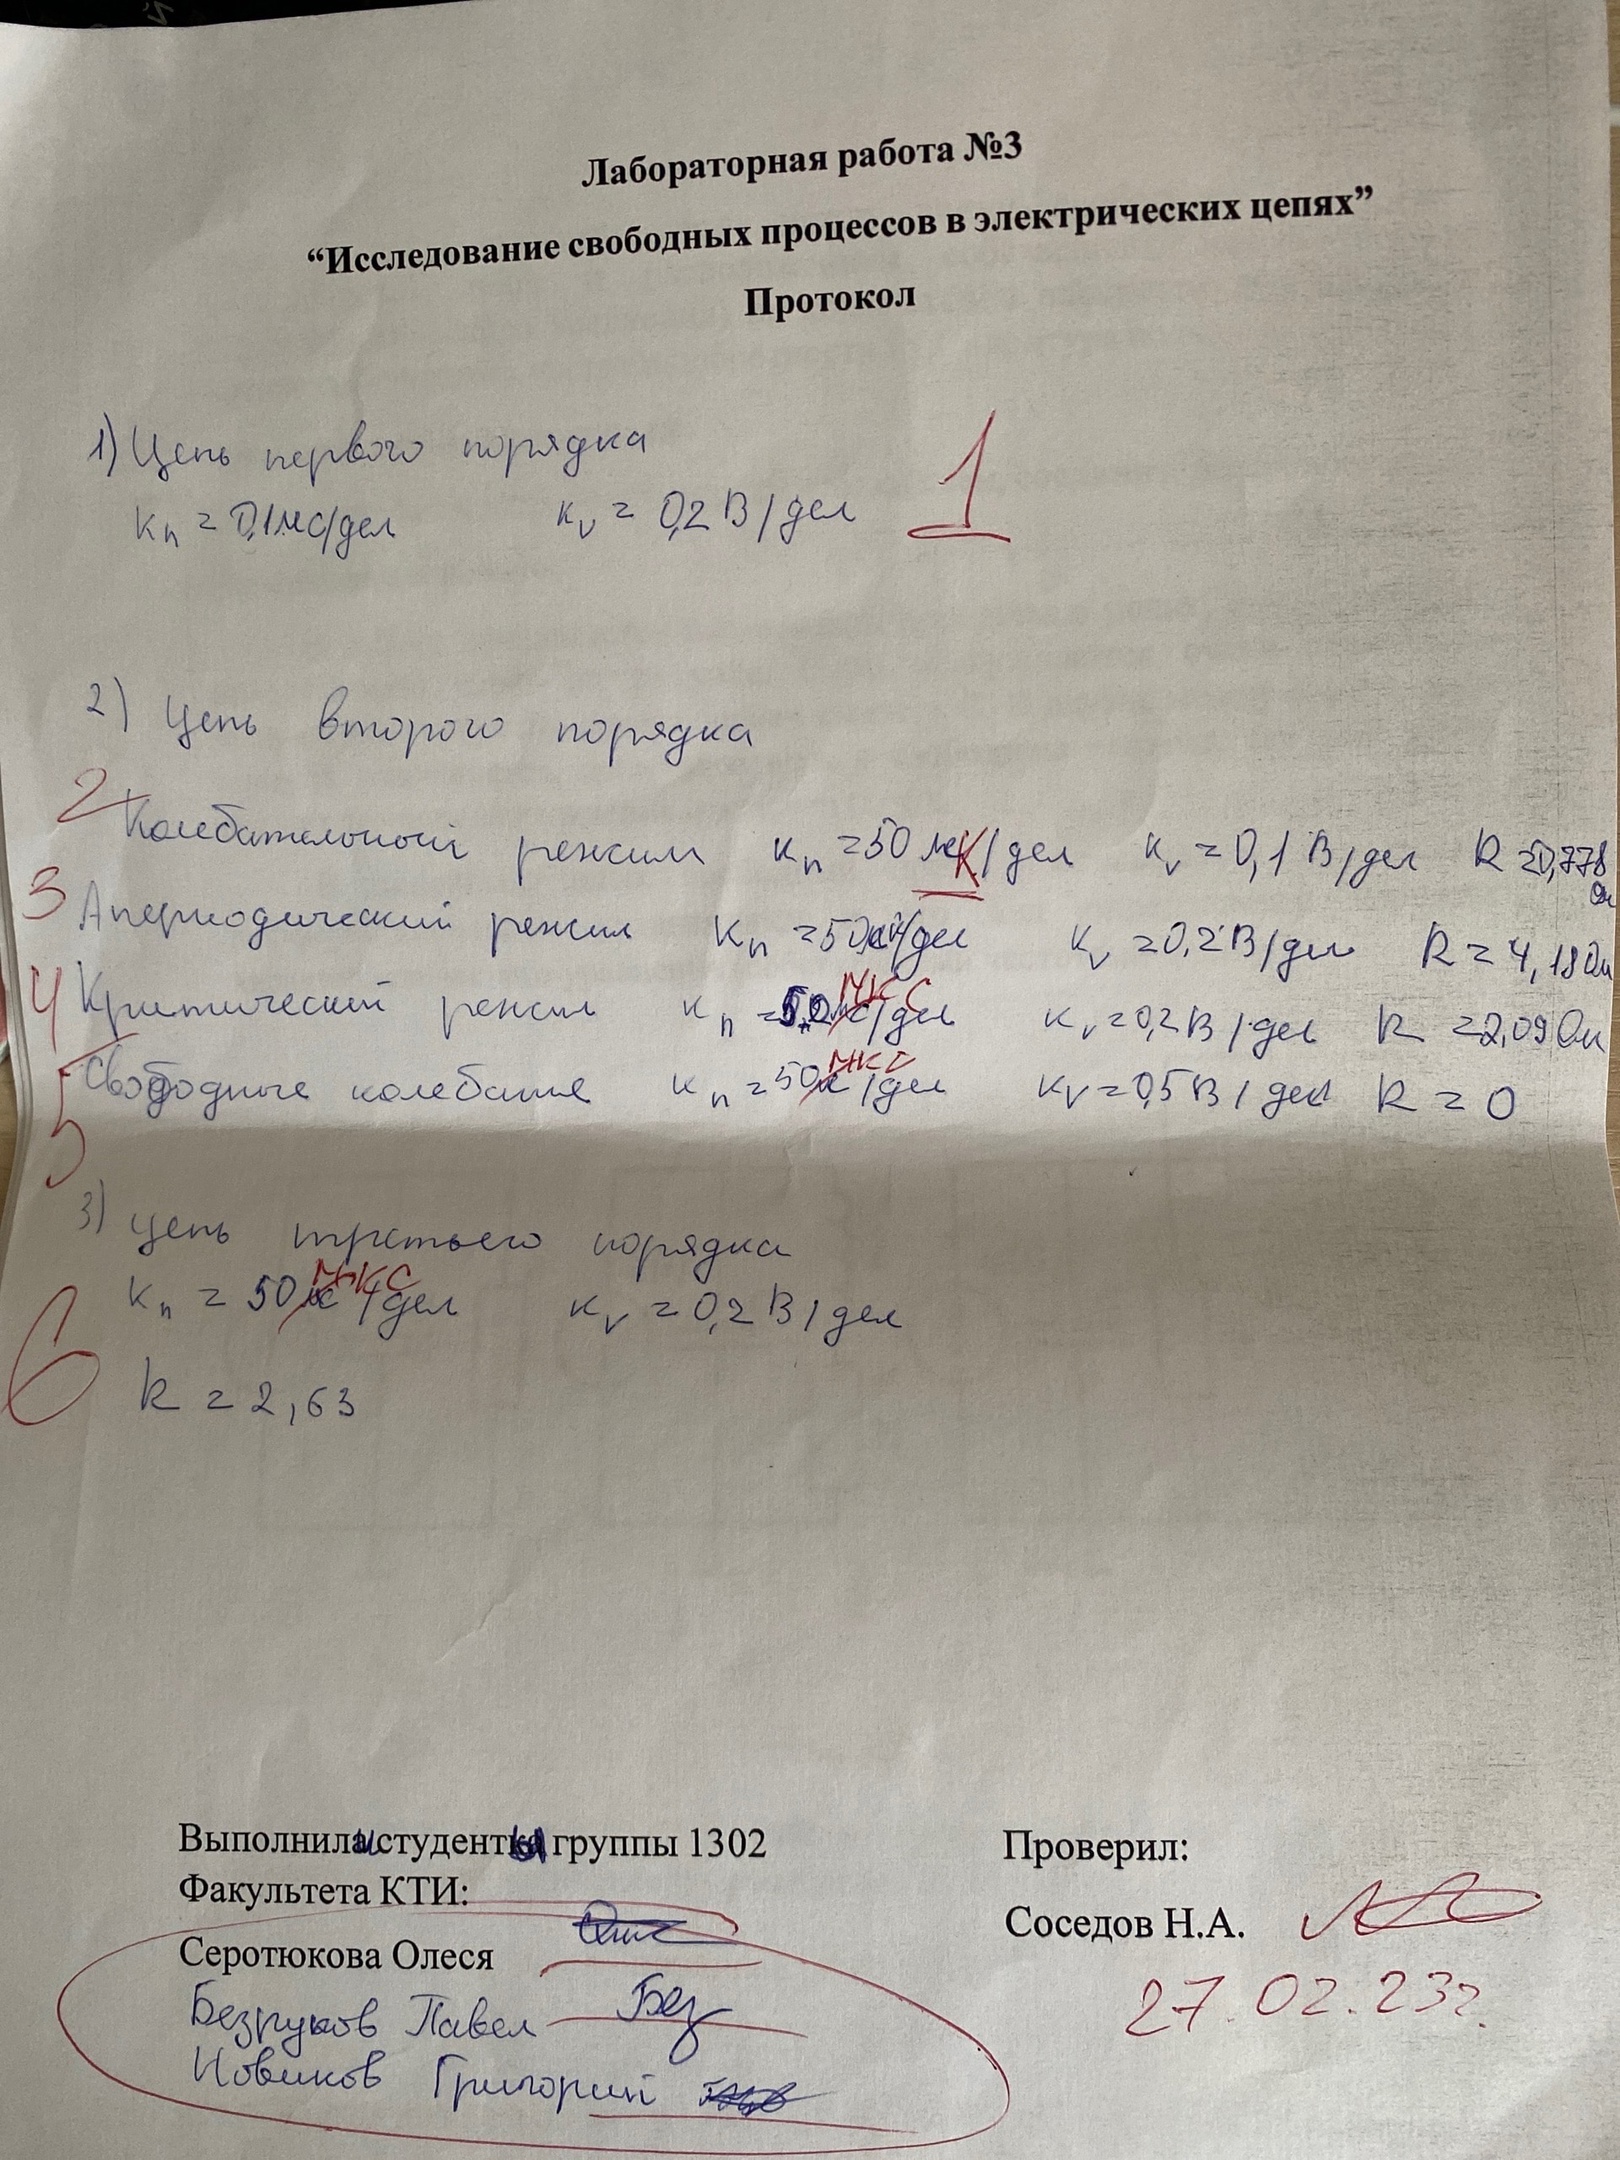 Лабораторная работа №3
“Исследование свободных процессов в электрических цепях”
Протокол
1) Цепь первого порядка 1
кп = 0,1мс/дел кv = 0,2 В/дел
2) Цепь второго порядка
2 Колебательный режим кп = 50 мк/дел кv = 0,1 В/дел R = 0,778 Ом
3 Апериодический режим кп = 50 /дел кv = 0,2 В/дел R = 4,18 Ом
4 Критический режим кп = 50 мкс/дел кv = 0,2 В/дел R = 2,09 Ом
5 Свободные колебания кп = 50 мкс/дел кv = 0,5 В/дел R = 0
3) цепь третьего порядка
6 кп = 50 мкс/дел кv = 0,2 В/дел
R = 2,63
Выполнили студенты группы 1302
Факультета КТИ:
Серотюкова Олеся
Безруков Павел Без
Новиков Григорий
Проверил:
Соседов Н.А.
27.02.23г.